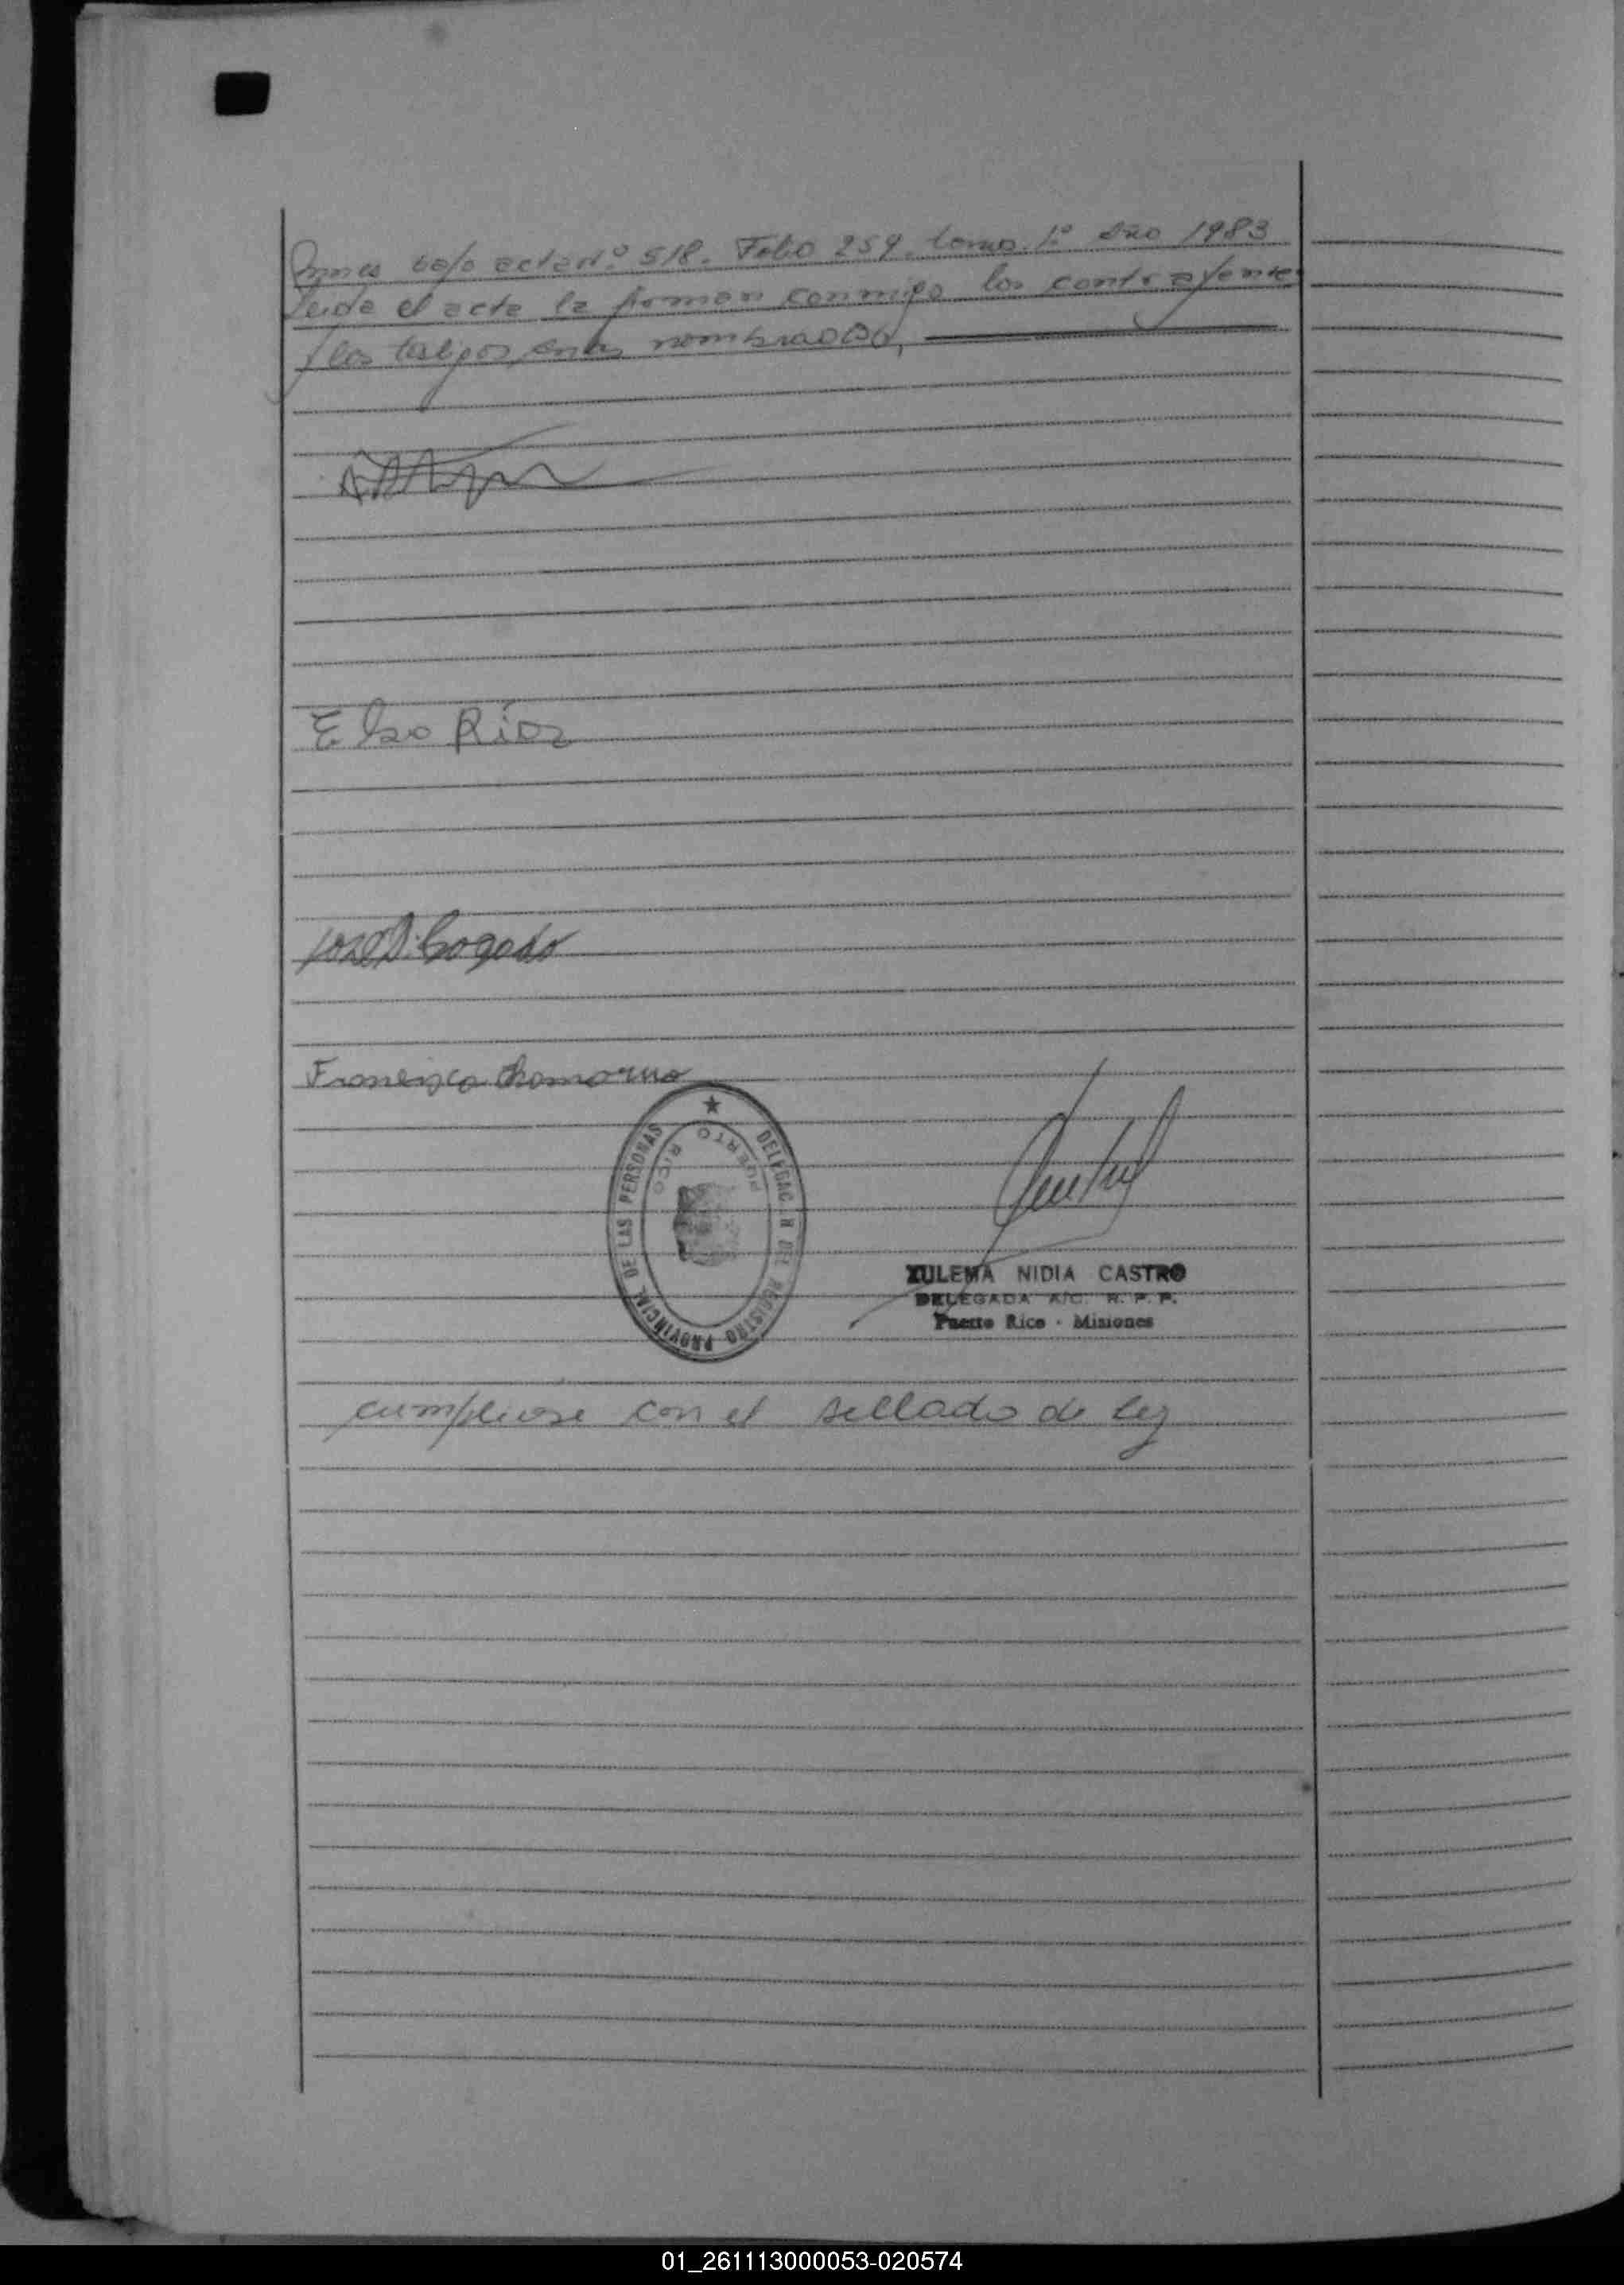 bajo acta Nº 518. Folio 259. tomo 1º año 1983
Leida el acta la firman conmigo los contrayentes
y los testigos nombrados,
Elsa Ríos
José D. Cogado
Francisca
★
DELEGAC N DEL REGISTRO PROVINCIAL DE LAS PERSONAS
PUERTO RICO
ZULEMA NIDIA CASTRO
DELEGADA A/C. R. P. P.
Puerto Rico - Misiones
cumpliose con el sellado de ley
01_261113000053-020574